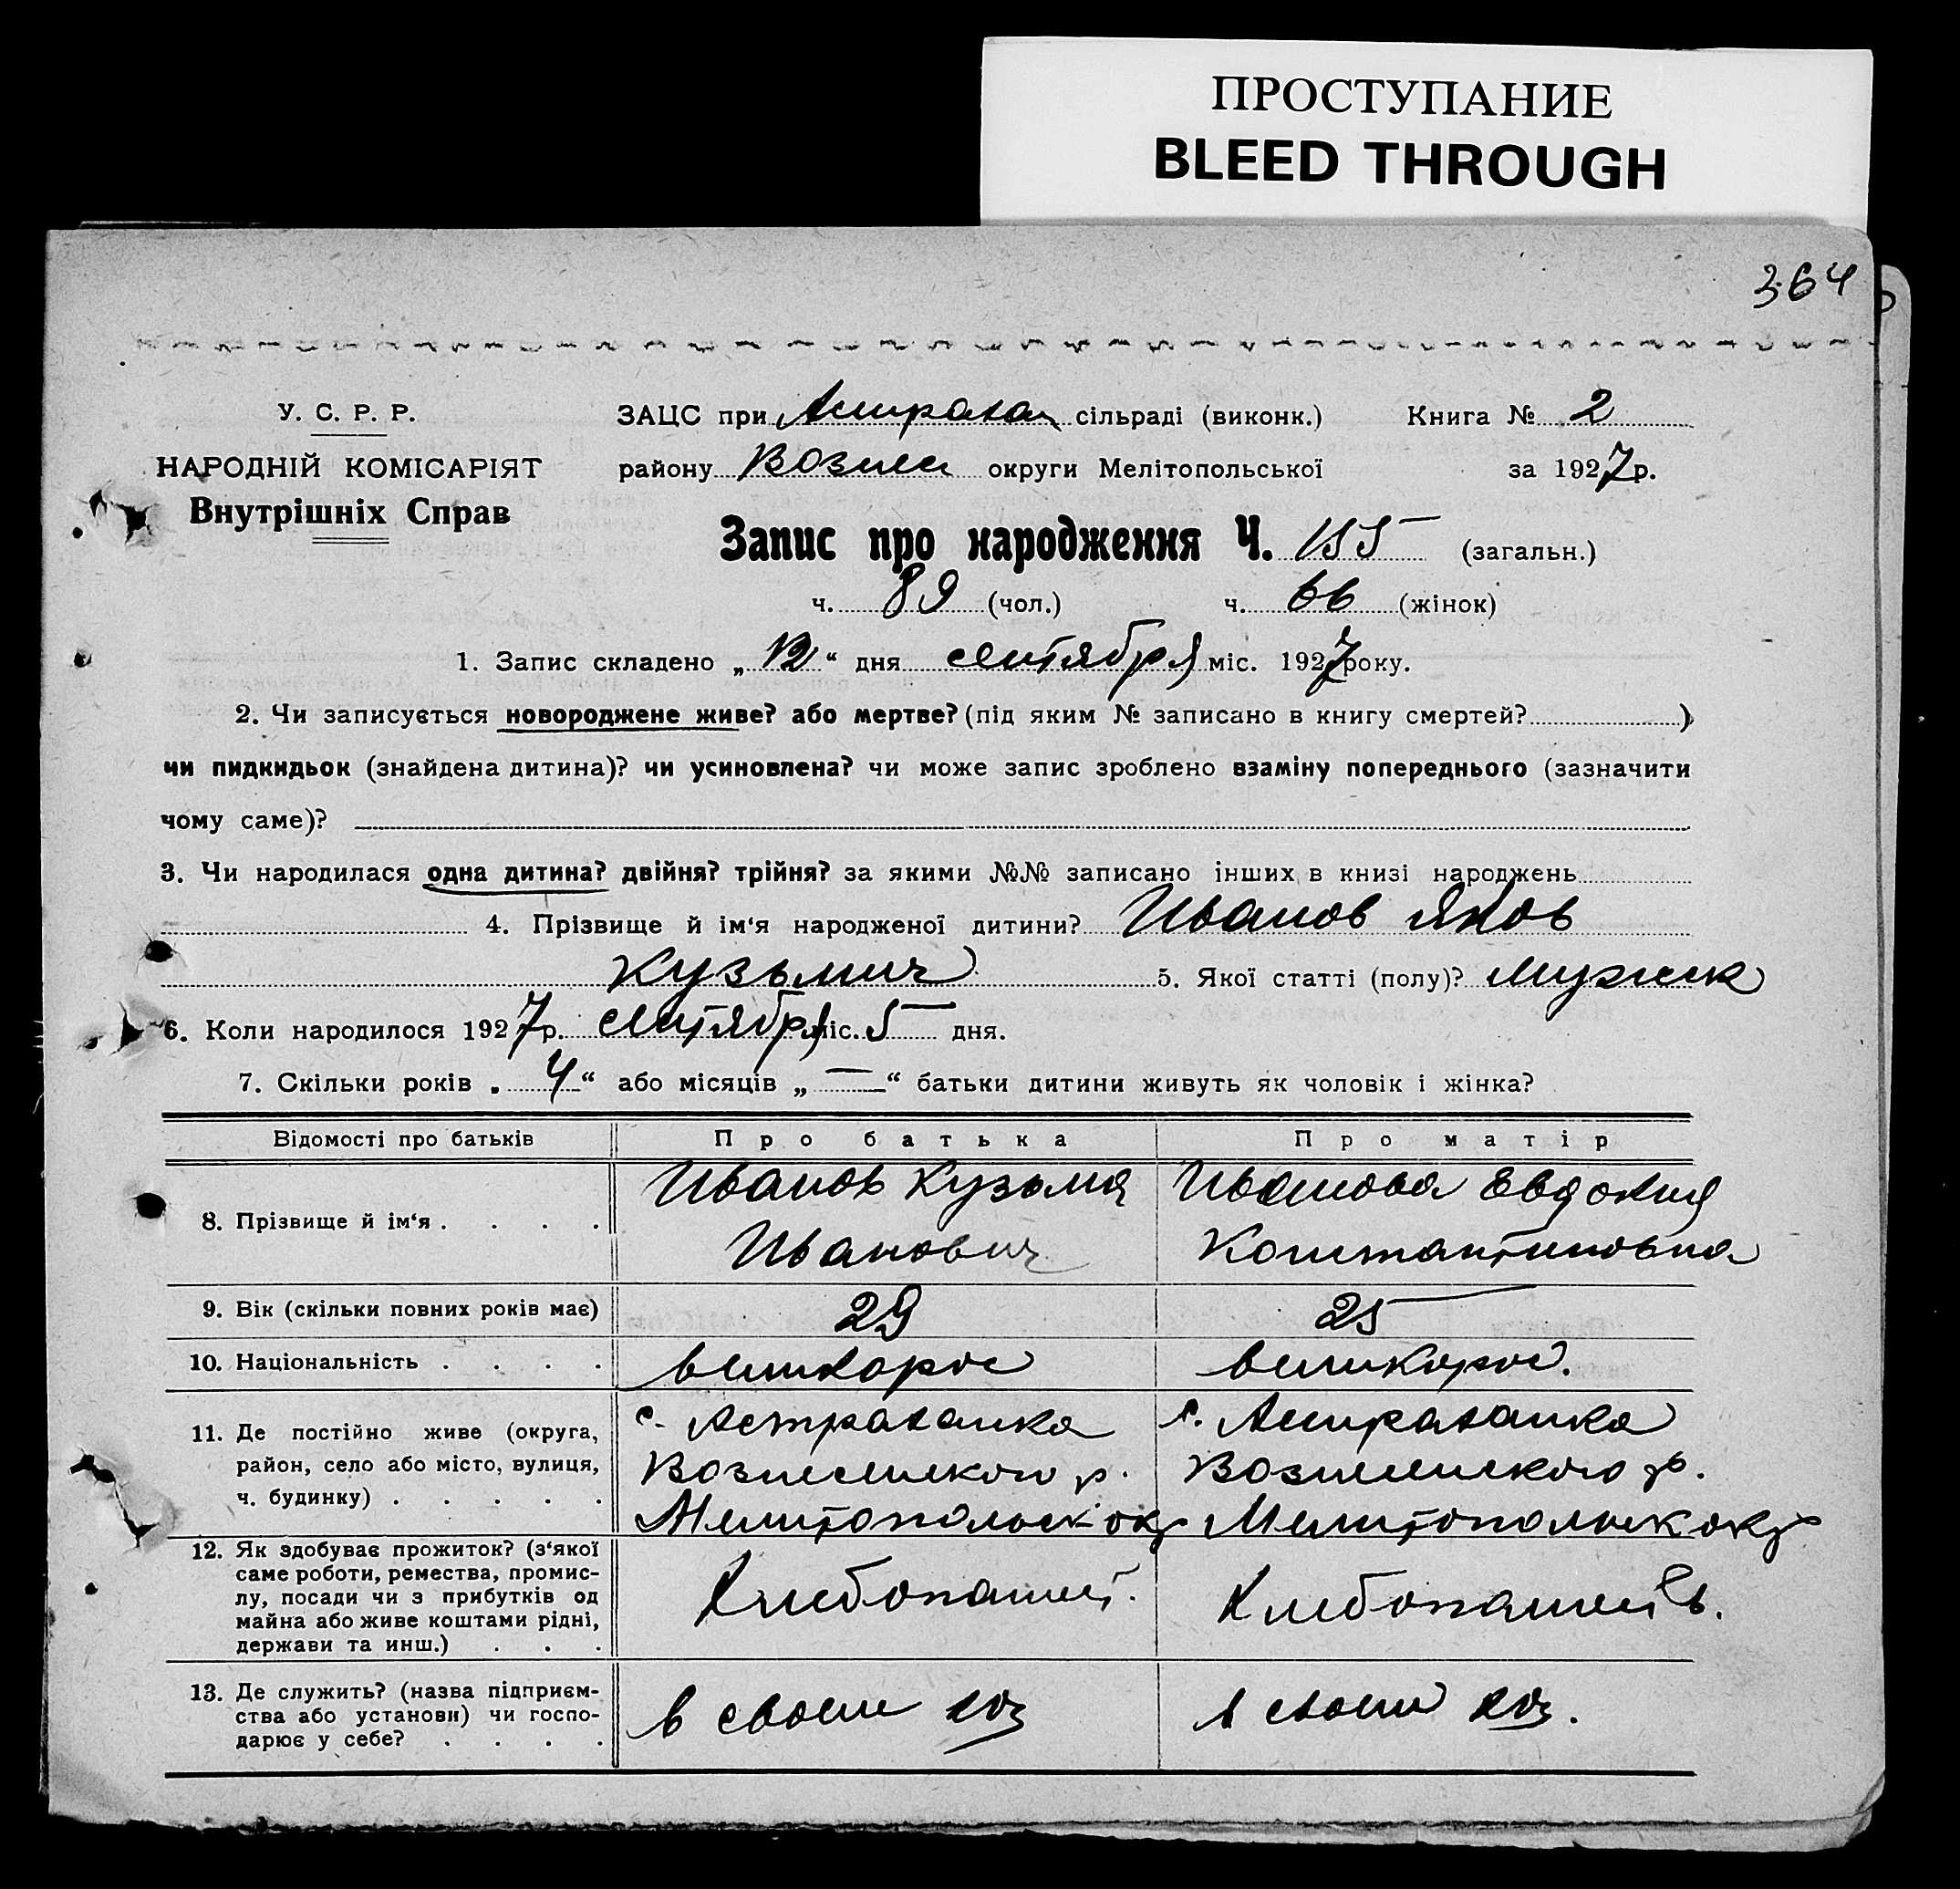 ПРОСТУПАНИЕ
BLEED THROUGH
364
У. С. Р. Р.
НАРОДНІЙ КОМІСАРІЯТ
Внутрішніх Справ
ЗАЦС при Астрахан сільраді (виконк.) Книга № 2
району Вознес округи Мелітопольської за 1927 р.
Запис про народження Ч. 155 (загальн.)
ч. 89 (чол.) ч. 66 (жінок)
1. Запис складено „ 12 “ дня сентября міс. 1927 року.
2. Чи записується новороджене живе? або мертве? (під яким № записано в книгу смертей? )
чи пидкидьок (знайдена дитина)? чи усиновлена? чи може запис зроблено взаміну попереднього (зазначити
чому саме)?
3. Чи народилася одна дитина? двійня? трійня? за якими №№ записано інших в книзі народжень
4. Прізвище й ім‘я народженої дитини? Иванов Яков
Кузьмич 5. Якої статті (полу)? Мужск
6. Коли народилося 1927 р. сентября міс. 5 дня.
7. Скільки років „ 4 “ або місяців „ — “ батьки дитини живуть як чоловік і жінка?
Відомості про батьків Про батька Про матір
8. Прізвище й ім‘я . . . .
Иванов Кузьма
Иванович
Иванова Евдокия
Константиновна
9. Вік (скільки повних років має) 29 25
10. Національність . . . . великорос великорос.
11. Де постійно живе (округа,
район, село або місто, вулиця,
ч. будинку) . . . . .
с. Астраханка
Вознесенского р.
Мелитопольск окр
с. Астраханка
Вознесенского р.
Мелитопольск окр
12. Як здобуває прожиток? (з‘якої
саме роботи, ремества, промис-
лу, посади чи з прибутків од
майна або живе коштами рідні,
держави та инш.) . . .
Хлебопашест.
Хлебопашеств.
13. Де служить? (назва підприєм-
ства або установи) чи госпо-
дарює у себе? . . . .
в своем хоз
в своем хоз.